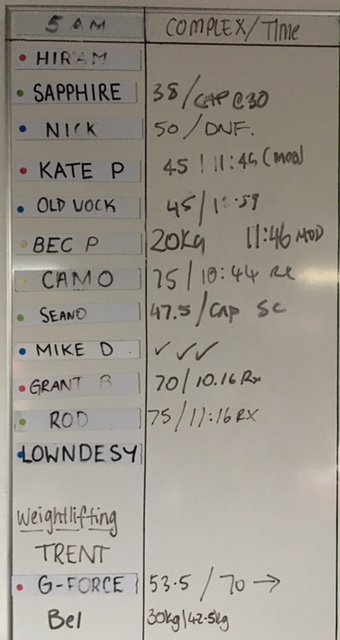 5 AM COMPLEX/TIME
HIRAM
SAPPHIRE 38/CAP @30
NICK 50/DNF.
KATE P 45 11:45 (MOD)
OLD VOCK 45/
BEC P 20Kg 11:46 MOD
CAMO 75/10:44 RX
SEANO 47.5/Cap SC
MIKE D ✓✓✓
GRANT B 70/10.16 Rx
ROD 75/11:16 RX
LOWNDESY
Weightlifting
TRENT
G-FORCE 53.5/70→
Bel 30kg/42.5kg